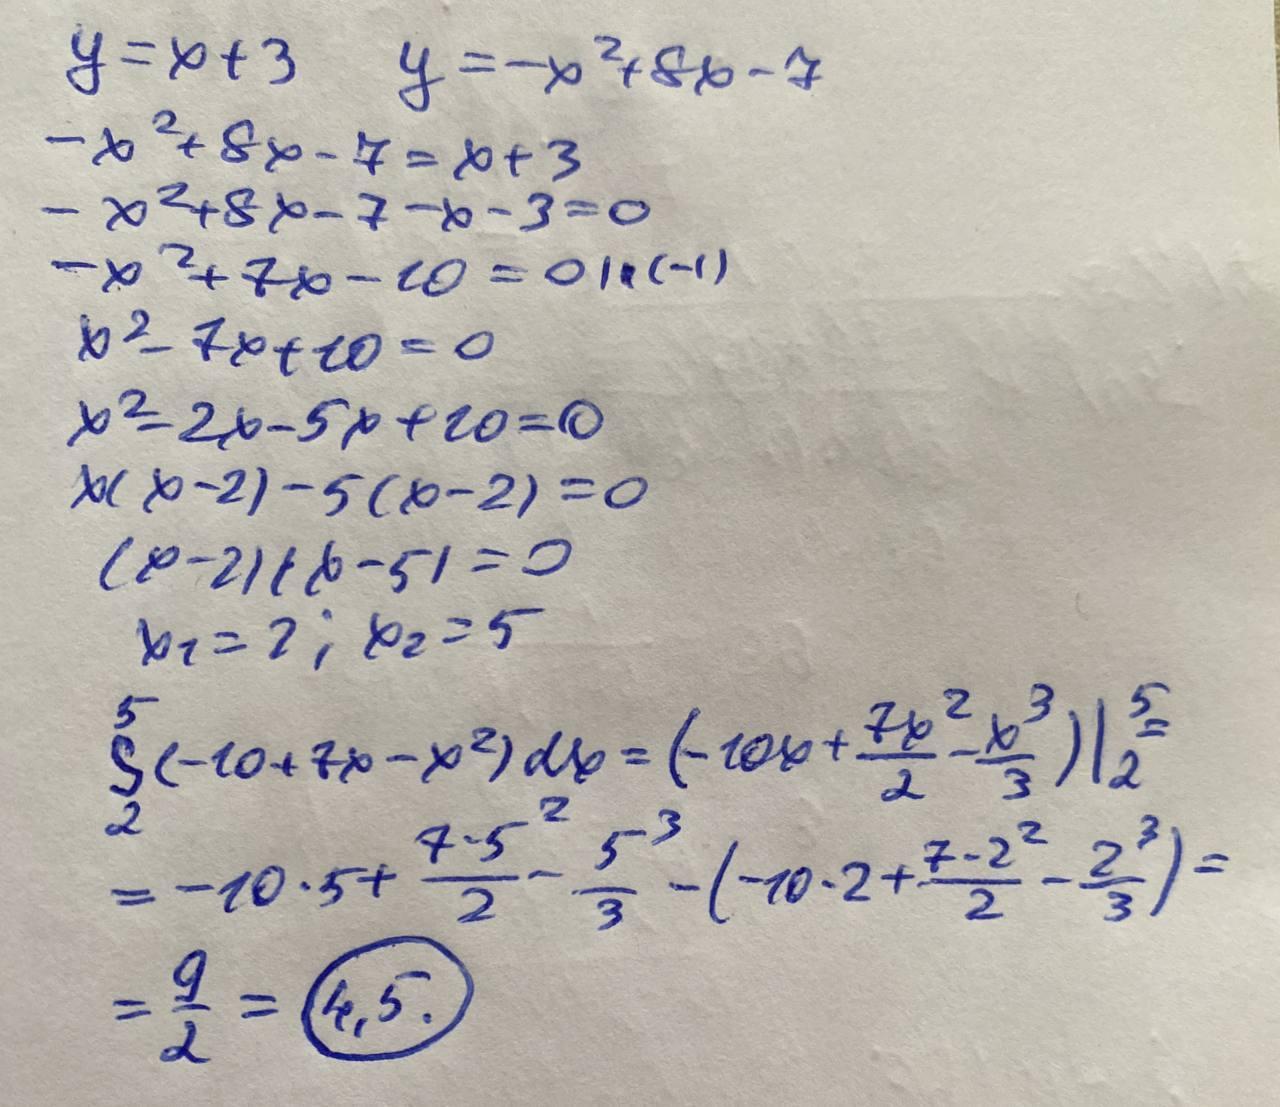 y = x + 3 y = -x² + 8x - 7
-x² + 8x - 7 = x + 3
-x² + 8x - 7 - x - 3 = 0
-x² + 7x - 10 = 0 | · (-1)
x² - 7x + 10 = 0
x² - 2x - 5x + 10 = 0
x(x - 2) - 5(x - 2) = 0
(x - 2)(x - 5) = 0
x₁ = 2; x₂ = 5
∫₂⁵ (-10 + 7x - x²) dx = (-10x + 7x²/2 - x³/3) |₂⁵ =
= -10 · 5 + 7·5²/2 - 5³/3 - (-10 · 2 + 7·2²/2 - 2³/3) =
= 9/2 = 4,5.